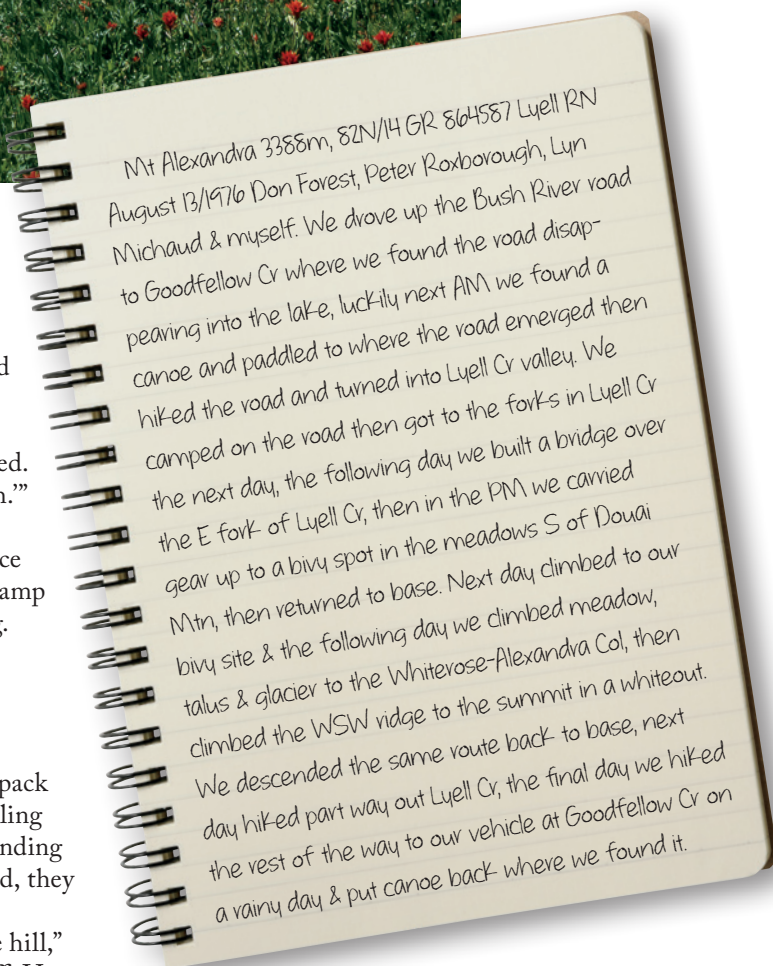 d
ed.
n.’”
ce
amp
g.
pack
ling
nding
d, they
e hill,”
Mt Alexandra 3388m, 82N/14 GR 864587 Lyell RN
August 13/1976 Don Forest, Peter Roxborough, Lyn
Michaud & myself. We drove up the Bush River road
to Goodfellow Cr where we found the road disap-
pearing into the lake, luckily next AM we found a
canoe and paddled to where the road emerged then
hiked the road and turned into Lyell Cr valley. We
camped on the road then got to the forks in Lyell Cr
the next day, the following day we built a bridge over
the E fork of Lyell Cr, then in the PM we carried
gear up to a bivy spot in the meadows S of Douai
Mtn, then returned to base. Next day climbed to our
bivy site & the following day we climbed meadow,
talus & glacier to the Whiterose-Alexandra Col, then
climbed the WSW ridge to the summit in a whiteout.
We descended the same route back to base, next
day hiked part way out Lyell Cr, the final day we hiked
the rest of the way to our vehicle at Goodfellow Cr on
a rainy day & put canoe back where we found it.